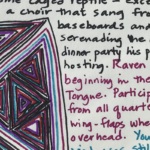 some caged reptile – exce
a choir that sang from
baseboards an
serenading the
dinner party his p
hosting. Raven
beginning in the
Tongue. Particip
from all quarte
wing-flaps whe
overhead. You